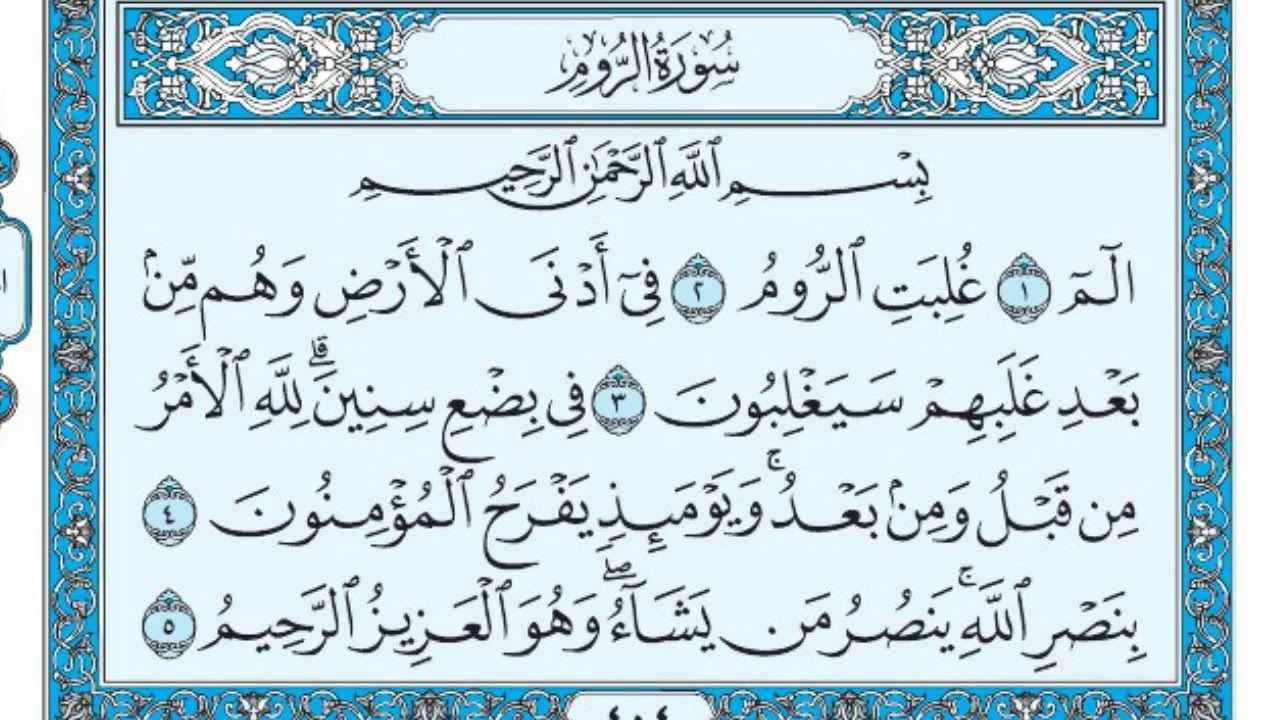 سُورَةُ الرُّومِ
بِسْمِ ٱللَّهِ ٱلرَّحْمَٰنِ ٱلرَّحِيمِ
الٓمٓ ١ غُلِبَتِ ٱلرُّومُ ٢ فِىٓ أَدْنَى ٱلْأَرْضِ وَهُم مِّنۢ
بَعْدِ غَلَبِهِمْ سَيَغْلِبُونَ ٣ فِى بِضْعِ سِنِينَ ۗ لِلَّهِ ٱلْأَمْرُ
مِن قَبْلُ وَمِنۢ بَعْدُ ۚ وَيَوْمَئِذٍ يَفْرَحُ ٱلْمُؤْمِنُونَ ٤
بِنَصْرِ ٱللَّهِ ۚ يَنصُرُ مَن يَشَآءُ ۖ وَهُوَ ٱلْعَزِيزُ ٱلرَّحِيمُ ٥
٤٠٤